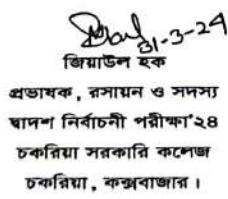 31-3-24
জিয়াউল হক
প্রভাষক, রসায়ন ও সদস্য
দ্বাদশ নির্বাচনী পরীক্ষা'২৪
চকরিয়া সরকারি কলেজ
চকরিয়া, কক্সবাজার।